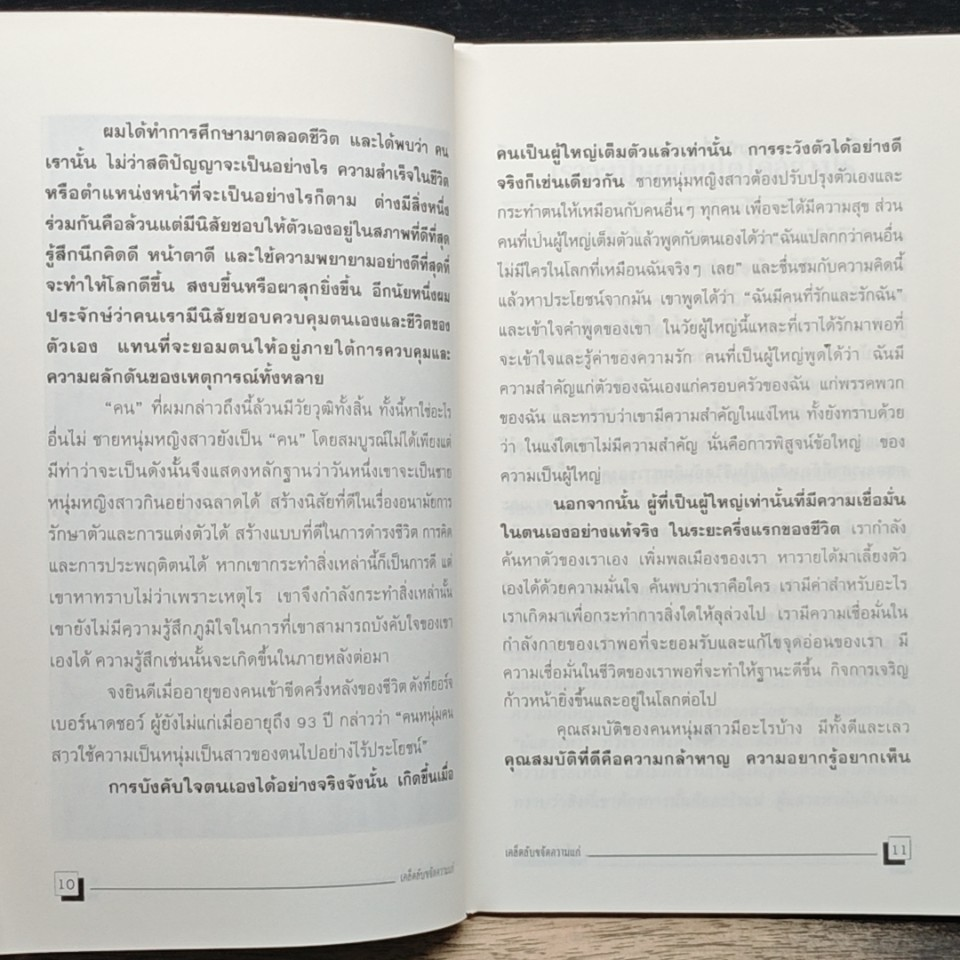 ผมได้ทำการศึกษามาตลอดชีวิต และได้พบว่า คน
เรานั้น ไม่ว่าสติปัญญาจะเป็นอย่างไร ความสำเร็จในชีวิต
หรือตำแหน่งหน้าที่จะเป็นอย่างไรก็ตาม ต่างมีสิ่งหนึ่ง
ร่วมกันคือล้วนแต่มีนิสัยชอบให้ตัวเองอยู่ในสภาพที่ดีที่สุด
รู้สึกนึกคิดดี หน้าตาดี และใช้ความพยายามอย่างดีที่สุดที่
จะทำให้โลกดีขึ้น สงบขึ้นหรือผาสุกยิ่งขึ้น อีกนัยหนึ่งผม
ประจักษ์ว่าคนเรามีนิสัยชอบควบคุมตนเองและชีวิตของ
ตัวเอง แทนที่จะยอมตนให้อยู่ภายใต้การควบคุมและ
ความผลักดันของเหตุการณ์ทั้งหลาย
“คน” ที่ผมกล่าวถึงนี้ล้วนมีวัยวุฒิทั้งสิ้น ทั้งนี้หาใช่อะไร
อื่นไม่ ชายหนุ่มหญิงสาวยังเป็น “คน” โดยสมบูรณ์ไม่ได้เพียงแต่
มีท่าว่าจะเป็นดังนั้นจึงแสดงหลักฐานว่าวันหนึ่งเขาจะเป็นชาย
หนุ่มหญิงสาวกินอย่างฉลาดได้ สร้างนิสัยที่ดีในเรื่องอนามัยการ
รักษาตัวและการแต่งตัวได้ สร้างแบบที่ดีในการดำรงชีวิต การคิด
และการประพฤติตนได้ หากเขากระทำสิ่งเหล่านี้ก็เป็นการดี แต่
เขาหาทราบไม่ว่าเพราะเหตุไร เขาจึงกำลังกระทำสิ่งเหล่านั้น
เขายังไม่มีความรู้สึกภูมิใจในการที่เขาสามารถบังคับใจของเขา
เองได้ ความรู้สึกเช่นนั้นจะเกิดขึ้นในภายหลังต่อมา
จงยินดีเมื่ออายุของคนเข้าขีดครึ่งหลังของชีวิต ดังที่ยอร์จ
เบอร์นาดชอว์ ผู้ยังไม่แก่เมื่ออายุถึง 93 ปี กล่าวว่า “คนหนุ่มคน
สาวใช้ความเป็นหนุ่มเป็นสาวของตนไปอย่างไร้ประโยชน์”
การบังคับใจตนเองได้อย่างจริงจังนั้น เกิดขึ้นเมื่อ
10 เคล็ดลับขจัดความแก่
คนเป็นผู้ใหญ่เต็มตัวแล้วเท่านั้น การระวังตัวได้อย่างดี
จริงก็เช่นเดียวกัน ชายหนุ่มหญิงสาวต้องปรับปรุงตัวเองและ
กระทำตนให้เหมือนกับคนอื่นๆ ทุกคน เพื่อจะได้มีความสุข ส่วน
คนที่เป็นผู้ใหญ่เต็มตัวแล้วพูดกับตนเองได้ว่า“ฉันแปลกกว่าคนอื่น
ไม่มีใครในโลกที่เหมือนฉันจริงๆ เลย” และชื่นชมกับความคิดนี้
แล้วหาประโยชน์จากมัน เขาพูดได้ว่า “ฉันมีคนที่รักและรักฉัน”
และเข้าใจคำพูดของเขา ในวัยผู้ใหญ่นี้แหละที่เราได้รักมาพอที่
จะเข้าใจและรู้ค่าของความรัก คนที่เป็นผู้ใหญ่พูดได้ว่า ฉันมี
ความสำคัญแก่ตัวของฉันเองแก่ครอบครัวของฉัน แก่พรรคพวก
ของฉัน และทราบว่าเขามีความสำคัญในแง่ไหน ทั้งยังทราบด้วย
ว่า ในแง่ใดเขาไม่มีความสำคัญ นั่นคือการพิสูจน์ข้อใหญ่ ของ
ความเป็นผู้ใหญ่
นอกจากนั้น ผู้ที่เป็นผู้ใหญ่เท่านั้นที่มีความเชื่อมั่น
ในตนเองอย่างแท้จริง ในระยะครึ่งแรกของชีวิต เรากำลัง
ค้นหาตัวของเราเอง เพิ่มพลเมืองของเรา หารายได้มาเลี้ยงตัว
เองได้ด้วยความมั่นใจ ค้นพบว่าเราคือใคร เรามีค่าสำหรับอะไร
เราเกิดมาเพื่อกระทำการสิ่งใดให้ลุล่วงไป เรามีความเชื่อมั่นใน
กำลังกายของเราพอที่จะยอมรับและแก้ไขจุดอ่อนของเรา มี
ความเชื่อมั่นในชีวิตของเราพอที่จะทำให้ฐานะดีขึ้น กิจการเจริญ
ก้าวหน้ายิ่งขึ้นและอยู่ในโลกต่อไป
คุณสมบัติของคนหนุ่มสาวมีอะไรบ้าง มีทั้งดีและเลว
คุณสมบัติที่ดีคือความกล้าหาญ ความอยากรู้อยากเห็น
เคล็ดลับขจัดความแก่ 11